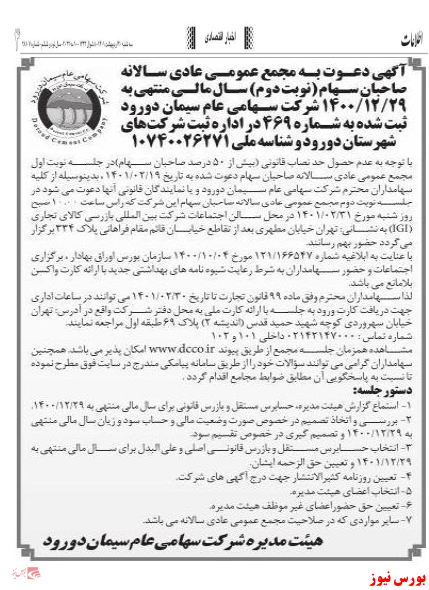 اطلاعات
اخبار اقتصادی
آگهی دعوت به مجمع عمومی عادی سالانه
صاحبان سهام (نوبت دوم) سال مالی منتهی به
۱۴۰۰/۱۲/۲۹ شرکت سهامی عام سیمان دورود
ثبت شده به شماره ۴۶۹ در اداره ثبت شرکت‌های
شهرستان دورود و شناسه ملی ۱۰۷۴۰۰۲۶۲۷۱
شرکت سهامی عام سیمان دورود
Doroud Cement Company
با توجه به عدم حصول حد نصاب قانونی (بیش از ۵۰ درصد صاحبان سهام) در جلسه نوبت اول
مجمع عمومی عادی سالانه صاحبان سهام دعوت شده به تاریخ ۱۴۰۱/۰۲/۱۹، بدینوسیله از کلیه
سهامداران محترم شرکت سهامی عام سیمان دورود و یا نمایندگان قانونی آنها دعوت می شود در
جلسه نوبت دوم مجمع عمومی عادی سالانه صاحبان سهام این شرکت که راس ساعت ۱۰:۰۰ صبح
روز شنبه مورخ ۱۴۰۱/۰۲/۳۱ در محل سالن اجتماعات شرکت بین المللی بازرسی کالای تجاری
(IGI) به نشانی: تهران خیابان مطهری بعد از تقاطع خیابان قائم مقام فراهانی پلاک ۲۳۴ برگزار
می گردد حضور بهم رسانند.
با عنایت به ابلاغیه شماره ۱۲۱/۱۶۵۴۷ مورخ ۱۴۰۰/۱۰/۰۴ سازمان بورس اوراق بهادار، برگزاری
اجتماعات و حضور سهامداران به شرط رعایت شیوه نامه های بهداشتی جدید با ارائه کارت واکسن
بلامانع می باشد.
لذا سهامداران محترم وفق ماده ۹۹ قانون تجارت تا تاریخ ۱۴۰۱/۰۲/۳۰ می توانند در ساعات اداری
جهت دریافت کارت ورود به جلسه با ارائه کارت ملی به محل دفتر شرکت واقع در آدرس: تهران
خیابان سهروردی کوچه شهید حمید قدس (اندیشه ۲) پلاک ۶۹ طبقه اول مراجعه نمایند.
شماره تماس : ۰۲۱۴۲۱۴۷۰۰۰ داخلی ۱۰۱ و ۱۰۲
مشاهده همزمان جلسه مجمع از طریق پیوند www.dcco.ir امکان پذیر می باشد. همچنین
سهامداران گرامی می توانند سؤالات خود را از طریق سامانه پیامکی مندرج در سایت فوق مطرح نموده
تا نسبت به پاسخگویی آن مطابق ضوابط مجامع اقدام گردد .
دستور جلسه:
۱- استماع گزارش هیئت مدیره، حسابرس مستقل و بازرس قانونی برای سال مالی منتهی به ۱۴۰۰/۱۲/۲۹.
۲- بررسی و اتخاذ تصمیم در خصوص صورت وضعیت مالی و حساب سود و زیان سال مالی منتهی
به ۱۴۰۰/۱۲/۲۹ و تصمیم گیری در خصوص تقسیم سود.
۳- انتخاب حسابرس مستقل و بازرس قانونی اصلی و علی البدل برای سال مالی منتهی به
۱۴۰۱/۱۲/۲۹ و تعیین حق الزحمه ایشان.
۴- تعیین روزنامه کثیرالانتشار جهت درج آگهی های شرکت.
۵- انتخاب اعضای هیئت مدیره.
۶- تعیین حق حضور اعضای غیر موظف هیئت مدیره.
۷- سایر مواردی که در صلاحیت مجمع عمومی عادی سالانه می باشد.
هیئت مدیره شرکت سهامی عام سیمان دورود
بورس نیوز